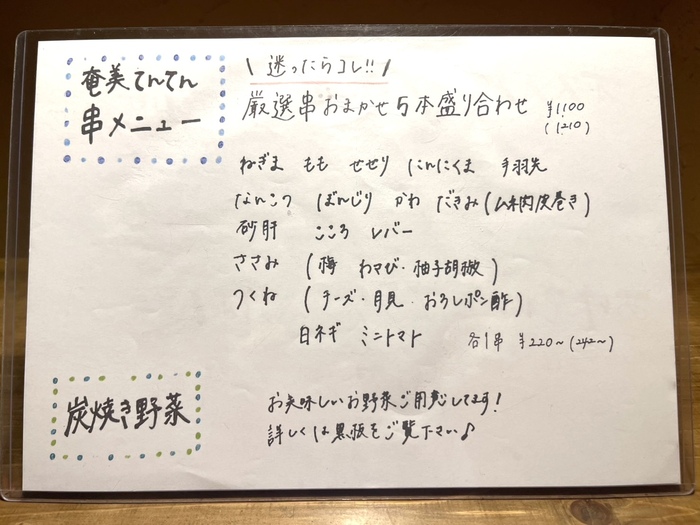 奄美てんてん
串メニュー
\ 迷ったらコレ!! /
厳選串おまかせ5本盛り合わせ ¥1,100
(1,210)
ねぎま もも せせり にんにくま 手羽先
なんこつ ぼんじり かわ だきみ(ムネ肉皮巻き)
砂肝 こころ レバー
ささみ (梅 わさび・柚子胡椒)
つくね (チーズ・月見 おろしポン酢)
白ネギ ミニトマト 各1串 ¥220~(242~)
炭焼き野菜
お美味しいお野菜ご用意してます!
詳しくは黒板をご覧下さい♪